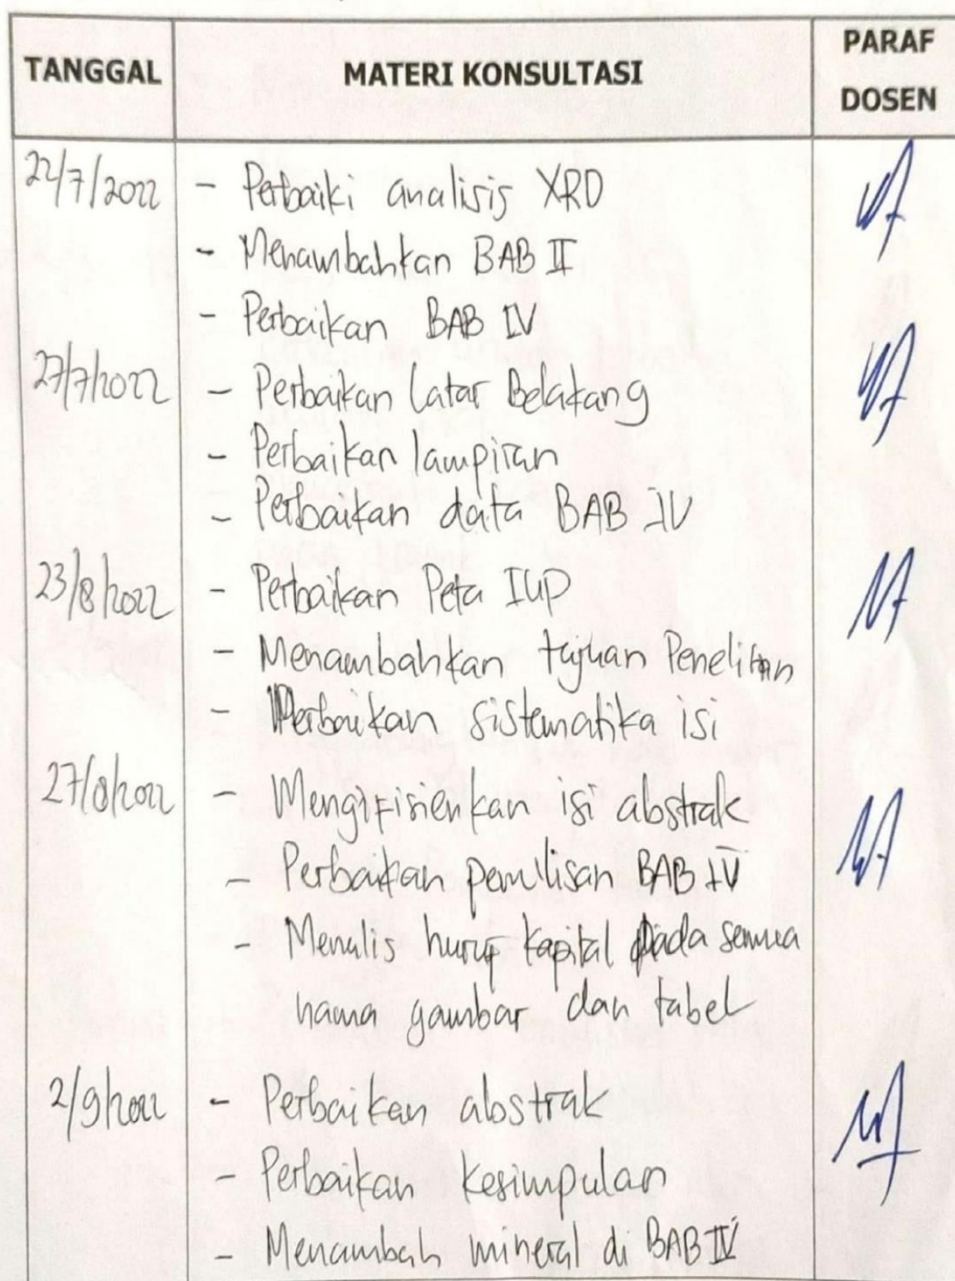 TANGGAL MATERI KONSULTASI PARAF DOSEN
22/7/2022 - Perbaiki analisis XRD
- Menambahkan BAB II
- Perbaikan BAB IV
27/7/2022 - Perbaikan Latar Belakang
- Perbaikan lampiran
- Perbaikan data BAB IV
23/8/2022 - Perbaikan Peta IUP
- Menambahkan tujuan Penelitian
- Perbaikan sistematika isi
27/8/2022 - Mengifisienkan isi abstrak
- Perbaikan penulisan BAB IV
- Menulis huruf kapital pada semua
nama gambar dan tabel
2/9/2022 - Perbaikan abstrak
- Perbaikan kesimpulan
- Menambah mineral di BAB IV